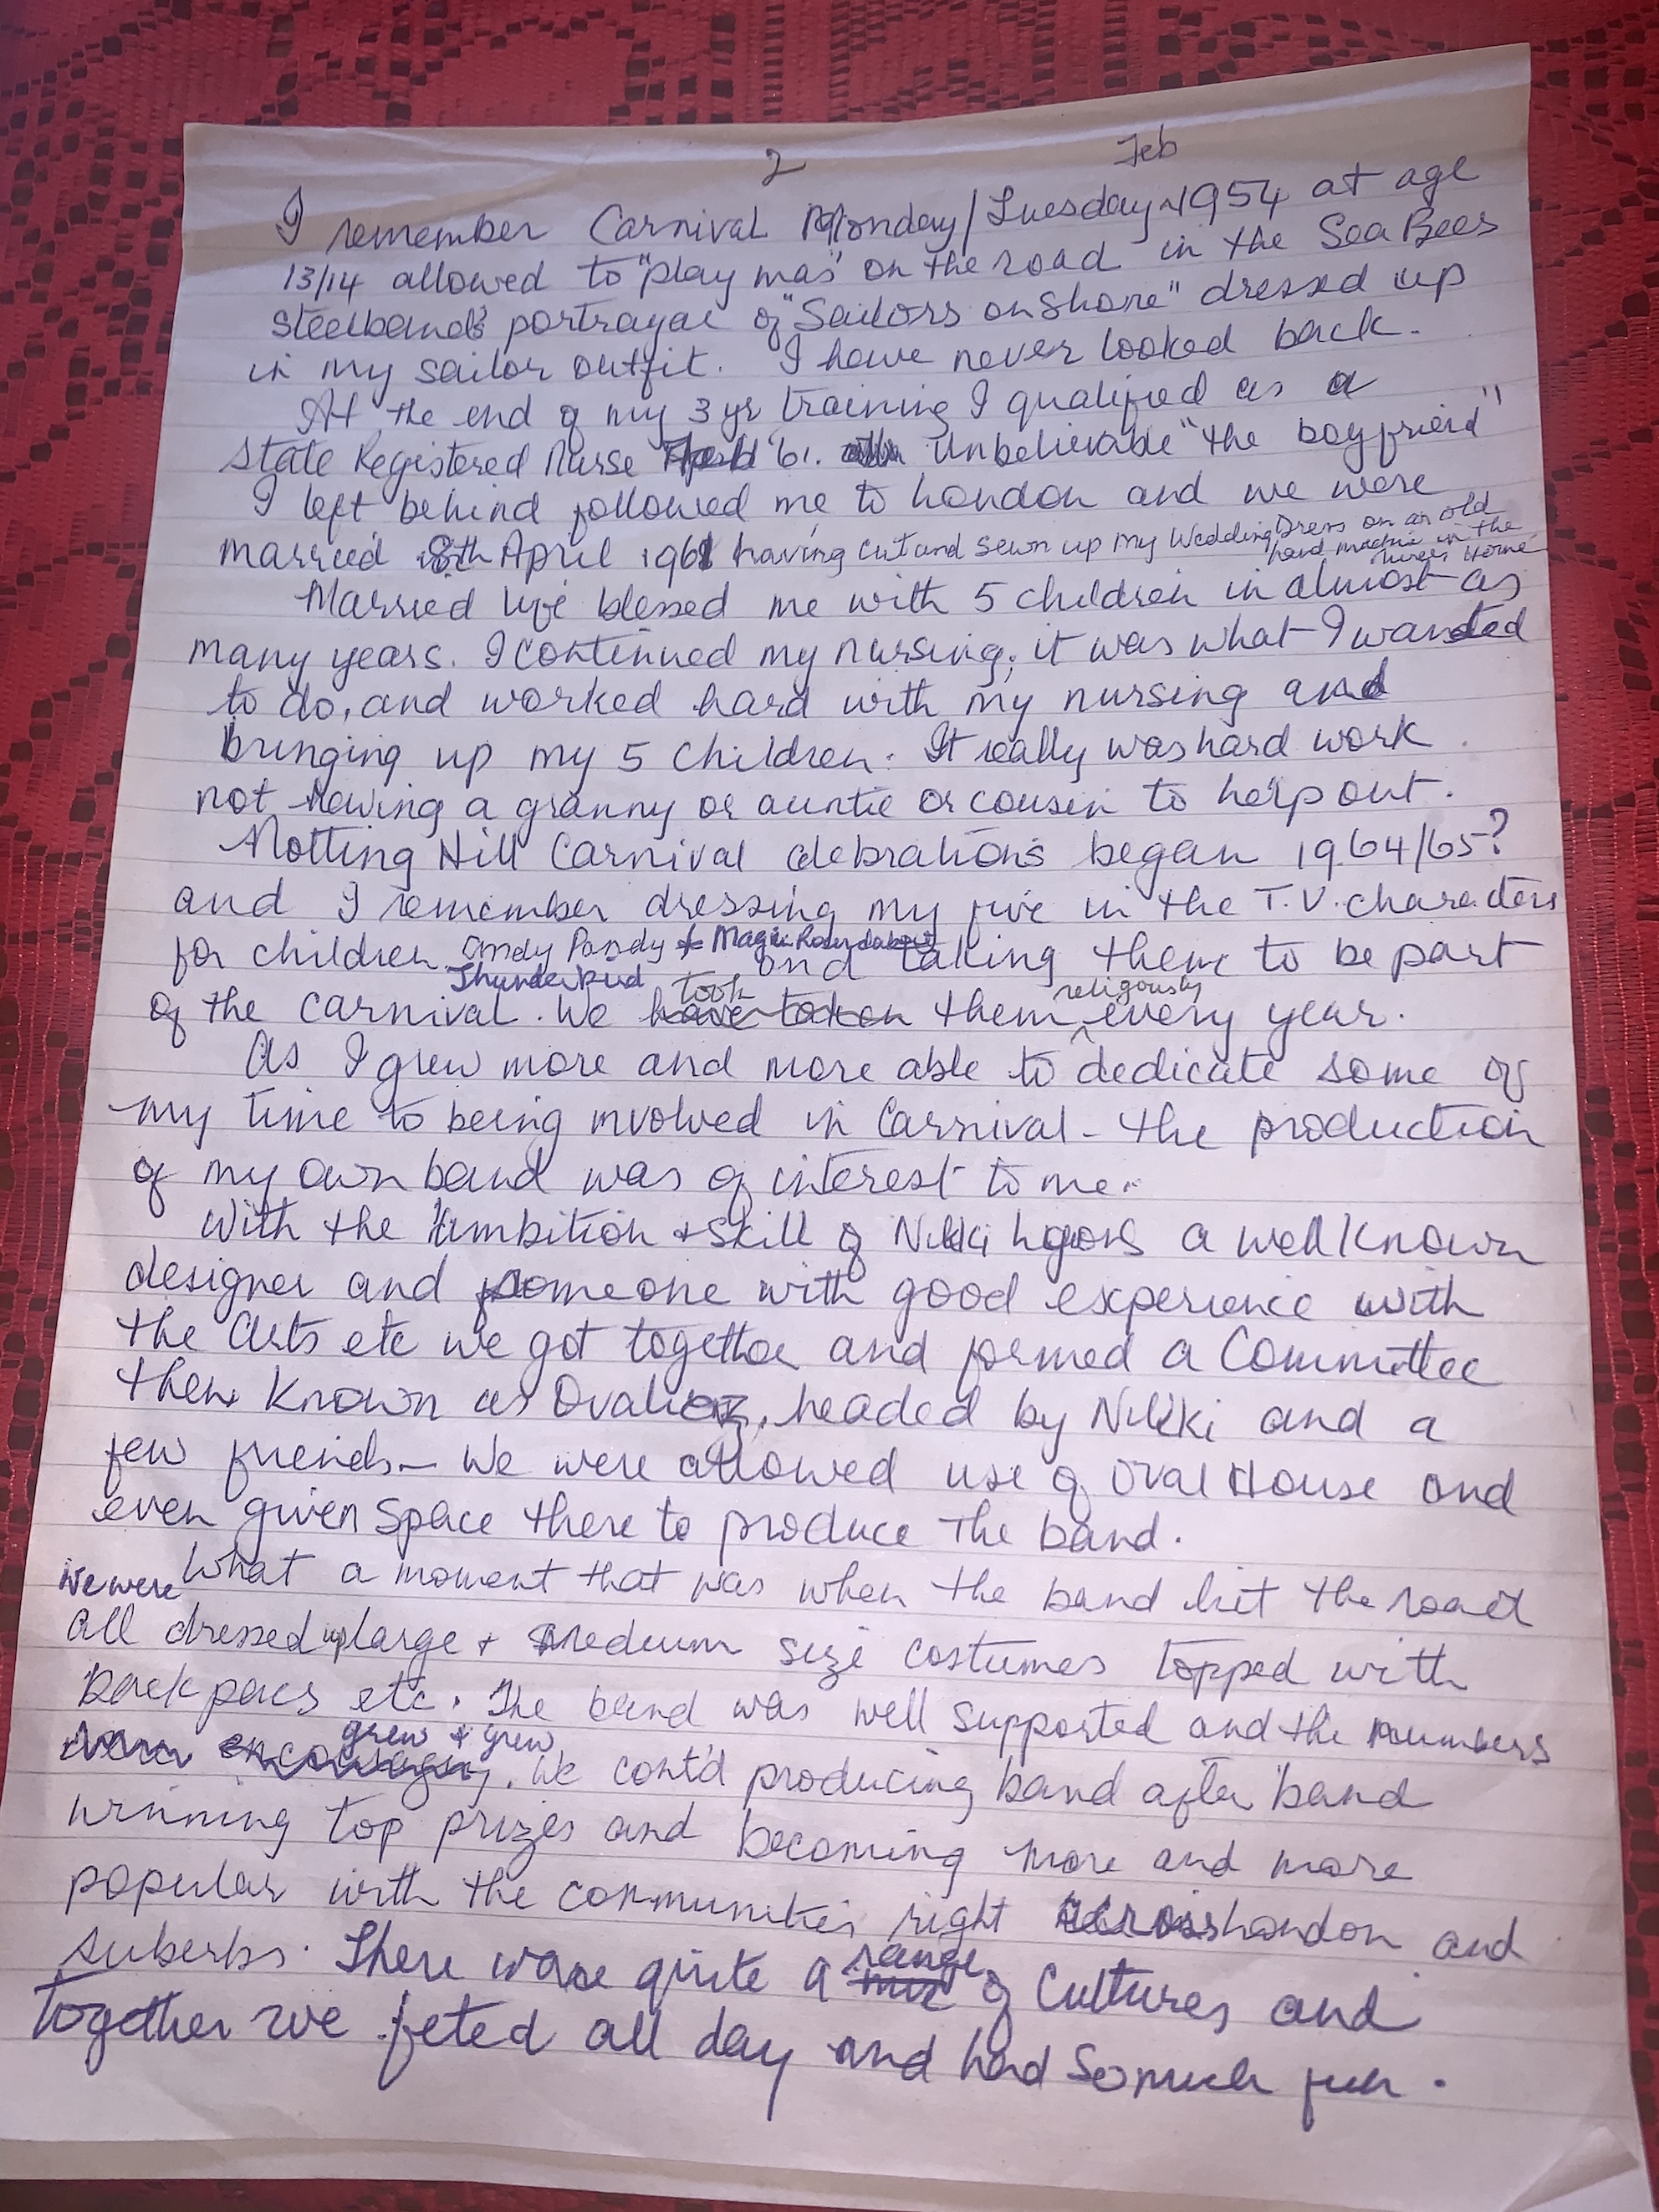 2
Feb
I remember Carnival Monday/Tuesday 1954 at age
13/14 allowed to "play mas" on the road in the Sea Bees
Steelband's portrayal of "Sailors on Shore" dressed up
in my sailor outfit. I have never looked back.
At the end of my 3 yr training I qualified as a
State Registered Nurse '61. Unbelievable "the boyfriend"
I left behind followed me to London and we were
married 8th April 1961 having cut and sewn up my Wedding Dress on an old
hand machine in the
Nurses Home
Married life blessed me with 5 children in almost as
many years. I continued my nursing, it was what I wanted
to do, and worked hard with my nursing and
bringing up my 5 children. It really was hard work
not having a granny or auntie or cousin to help out.
Notting Hill Carnival celebrations began 1964/65?
and I remember dressing my five in the T.V. characters
for children Andy Pandy & Magic Roundabout and taking them to be part
Thunderbird
of the carnival. We have taken took them religously every year.
As I grew more and more able to dedicate some of
my time to being involved in Carnival - the production
of my own band was of interest to me.
With the ambition + skill of Nikki a well known
designer and someone with good experience with
the Arts etc we got together and formed a Committee
then known as headed by Nikki and a
few friends - We were allowed use of Oval House and
even given space there to produce the band.
What a moment that was when the band hit the road
We were
all dressed up large + medium size costumes topped with
back pacs etc. The band was well supported and the numbers
grew & grew
encouraging. We cont'd producing band after band
winning top prizes and becoming more and more
popular with the communities right across London and
suberbs. There were quite a range of Cultures and
together we feted all day and had so much fun.